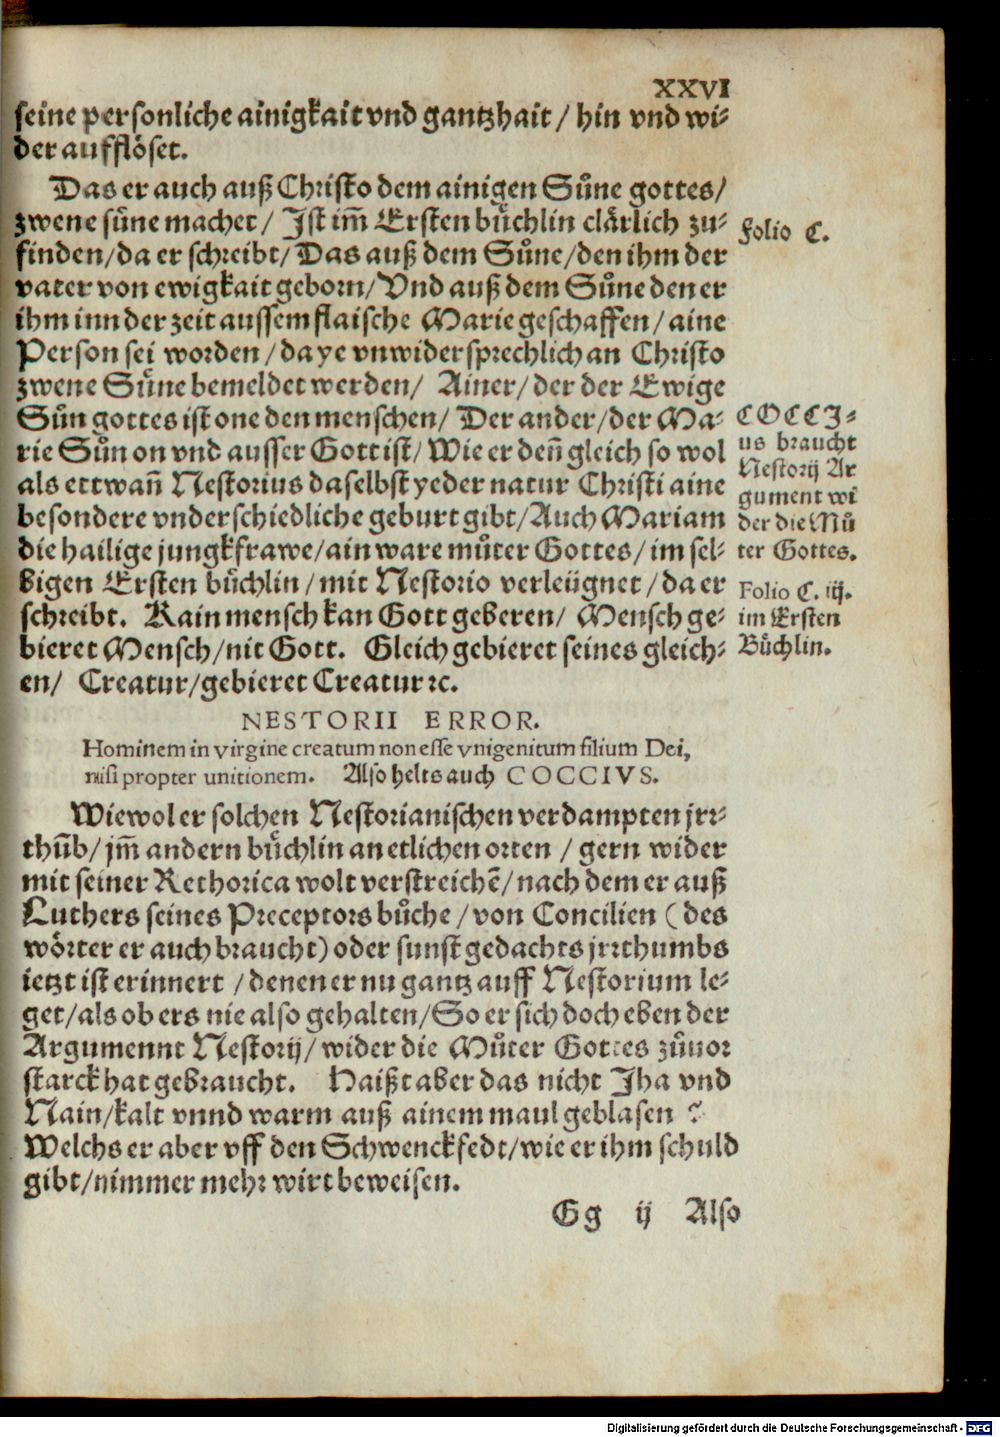 XXVI
seine personliche ainigkait vnd gantzhait / hin vnd wi-
der aufflöset.
Das er auch auß Christo dem ainigen Sůne gottes/
zwene sůne machet/ Jst im̃ Ersten bůchlin clårlich zu-
finden/da er schreibt/Das auß dem Sůne/den ihm der
vater von ewigkait geborn/Vnd auß dem Sůne den er
ihm inn der zeit aussem flaische Marie geschaffen/aine
Person sei worden/da ye vnwidersprechlich an Christo
zwene Sůne bemeldet werden/ Ainer/der der Ewige
Sůn gottes ist one den menschen/ Der ander/der Ma-
rie Sůn on vnd ausser Gott ist/ Wie er deñ gleich so wol
als ettwañ Nestorius daselbst yeder natur Christi aine
besondere vnderschiedliche geburt gibt/Auch Mariam
die hailige jungkfrawe/ain ware můter Gottes/im sel-
bigen Ersten bůchlin/mit Nestorio verleügnet/da er
schreibt. Kain mensch kan Gott geberen/ Mensch ge-
bieret Mensch/nit Gott. Gleich gebieret seines gleich-
en/ Creatur/gebieret Creatur ꝛc.
Folio C.
COCCJ-
us braucht
Nestorij Ar
gument wi
der die Mů
ter Gottes.
Folio C. iij.
im Ersten
Bůchlin.
NESTORII ERROR.
Hominem in virgine creatum non esse vnigenitum filium Dei,
nisi propter unitionem. Also helts auch COCCIVS.
Wiewol er solchen Nestorianischen verdampten jrr-
thům̃b/jm̃ andern bůchlin an etlichen orten / gern wider
mit seiner Rethorica wolt verstreichẽ/nach dem er auß
Luthers seines Preceptors bůche/von Concilien (des
wörter er auch braucht) oder sunst gedachts jrrthumbs
ietzt ist erinnert /denen er nu gantz auff Nestorium le-
get/als ob ers nie also gehalten/So er sich doch eben der
Argumennt Nestorij/wider die Můter Gottes zůuor
starck hat gebraucht. Haißt aber das nicht Jha vnd
Nain/kalt vnnd warm auß ainem maul geblasen ?
Welchs er aber vff den Schwenckfedt/wie er ihm schuld
gibt/nimmer mehr wirt beweisen.
Gg ij Also
Digitalisierung gefördert durch die Deutsche Forschungsgemeinschaft - DFG